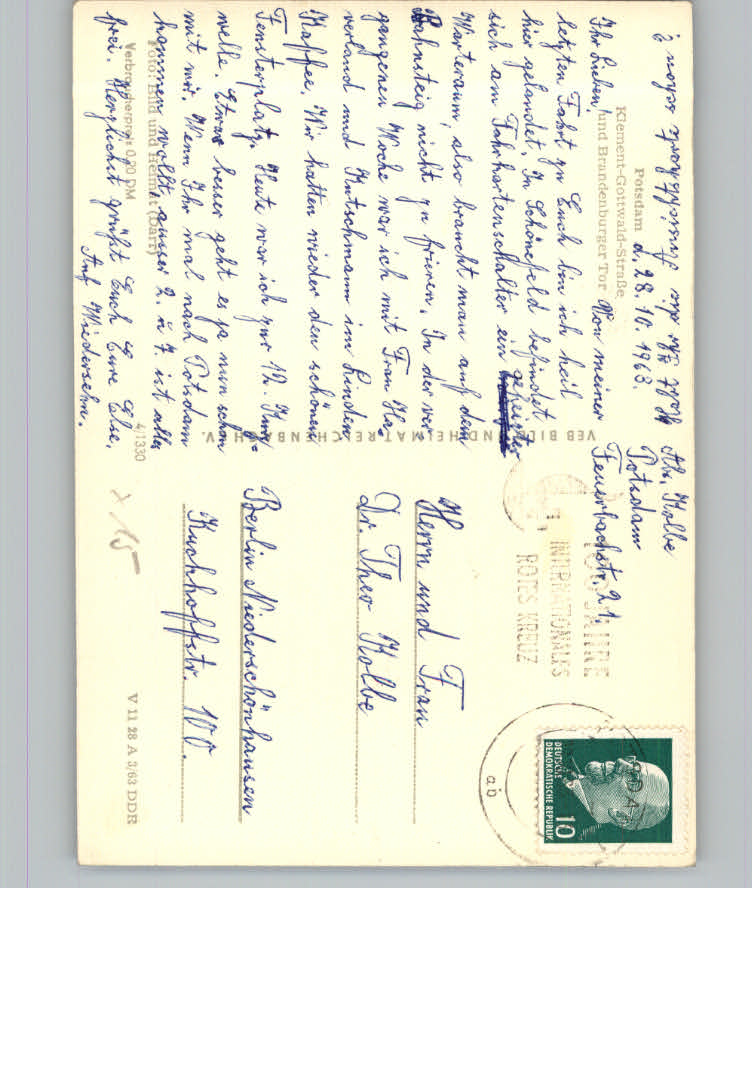 Habt Ihr die Fürsichthand schon?
Potsdam
d. 28. 10. 1963.
Klement-Gottwald-Straße
und Brandenburger Tor
Ihr Lieben! Von meiner
letzten Fahrt zu Euch bin ich heil
hier gelandet. In Schönefeld befindet
sich am Fahrkartenschalter ein geheizter
Warteraum, also braucht man auf dem
Bahnsteig nicht zu frieren. In der ver-
gangenen Woche war ich mit Frau Ha-
verland und Kutschmann im Linden
Kaffee. Wir hatten wieder den schönen
Fensterplatz. Heute war ich zur 12.
welle. Etwas besser geht es ja nun schon
mit mir. Wenn Ihr mal nach Potsdam
kommen wollt, ausser 2. u 7. ist alles
frei. Herzlichst grüßt Euch Eure Else.
Auf Wiedersehn.
Foto: Bild und Heimat (Darr)
Verbraucherpreis 0,20 DM
4/1330
VEB BILD UND HEIMAT REICHENBACH I. V.
Abs. Kolbe
Potsdam
Feuerbachstr. 21.
100 JAHRE
INTERNATIONALES
ROTES KREUZ
DEUTSCHE
DEMOKRATISCHE REPUBLIK
10
Herrn und Frau
Dr. Theo Kolbe
Berlin Niederschönhausen
Kuckhoffstr. 100.
x 15
V 11 28 A 3/63 DDR